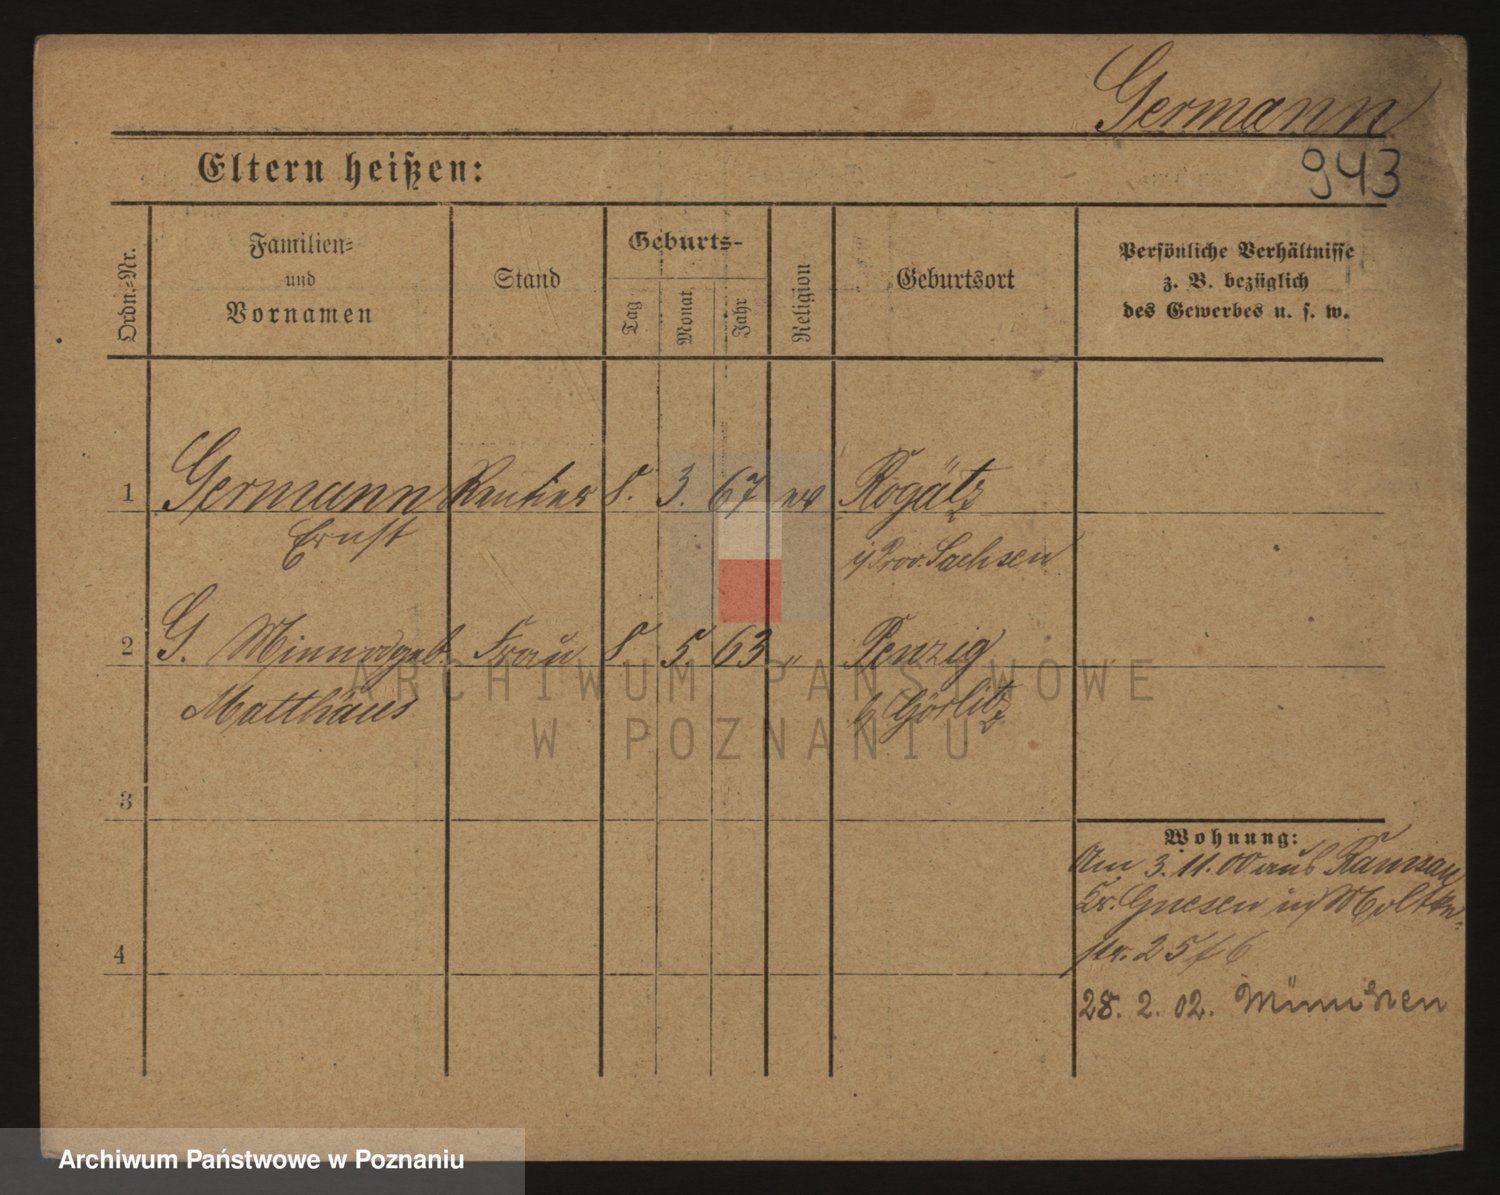 Germann
943
Eltern heißen:
Ordn.-Nr.
Familien-
und
Vornamen
Stand
Geburts-
Tag
Monat
Jahr
Religion
Geburtsort
Persönliche Verhältnisse
z. B. bezüglich
des Gewerbes u. s. w.
1 Germann Rentier 8. 3. 67 ev Rogätz
Ernst i/Prov. Sachsen
2 G. Minna geb. Frau 8 5. 63 " Penzig
Matthäus b Görlitz
3
4
Wohnung:
Am 3. 11. 00 aus
Kr. Gnesen in Moltke-
str. 25
28. 2. 02. München
ARCHIWUM PAŃSTWOWE
W POZNANIU
Archiwum Państwowe w Poznaniu